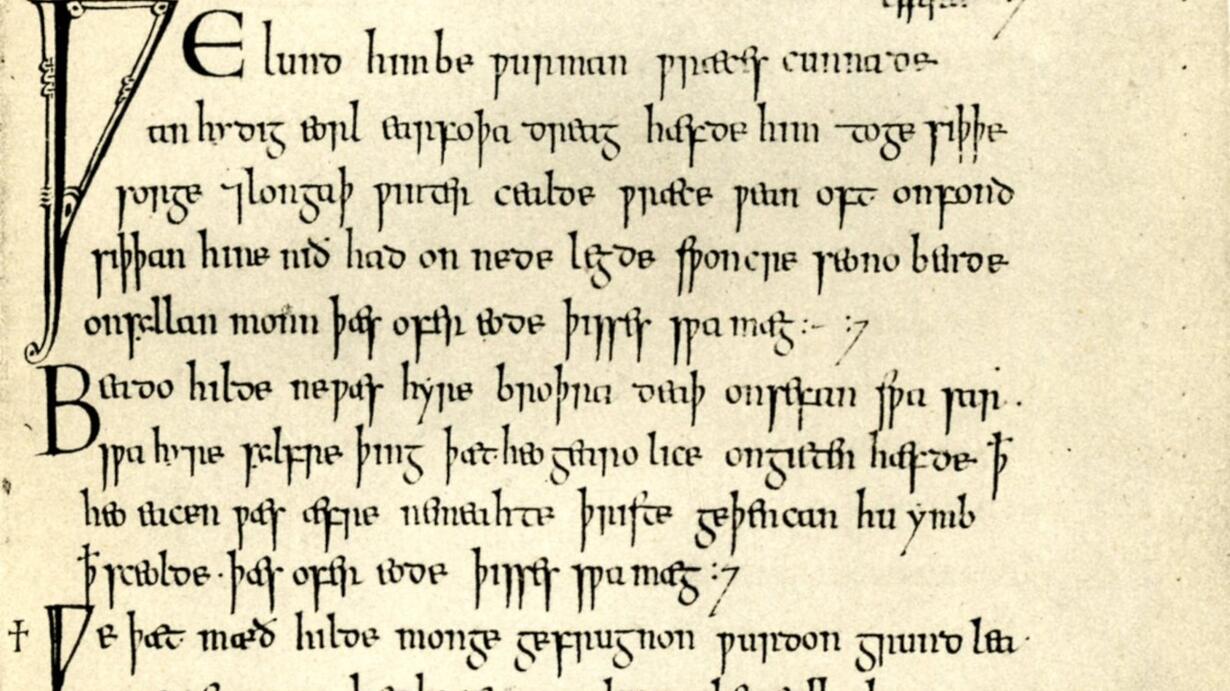 ǷELund himbe ƿurman ƿræces cunnade
anhydig eorl earfoþa dreag hæfde him to ge siþþe
sorge ⁊longaþ ƿinter cealde ƿræce ƿean oft onfond
siþþan hine nið had on nede legde sƿoncre seono bende
onsyllan monn þæs ofer eode þisses sƿa mæg :- :7
Beado hilde neƿæs hyre broþra deaþ onsefan sƿa sar .
sƿa hyre sylfre þing þæt heo gearo lice ongieten hæfde ꝥ
heo eacen ƿæs æfre nemeahte þriste geþencan hu ymb
ꝥ sceolde · þæs ofer eode þisses sƿa mæg :7
† Ƿe þæt mæð hilde monge gefrugnon ƿurdon grund lea·